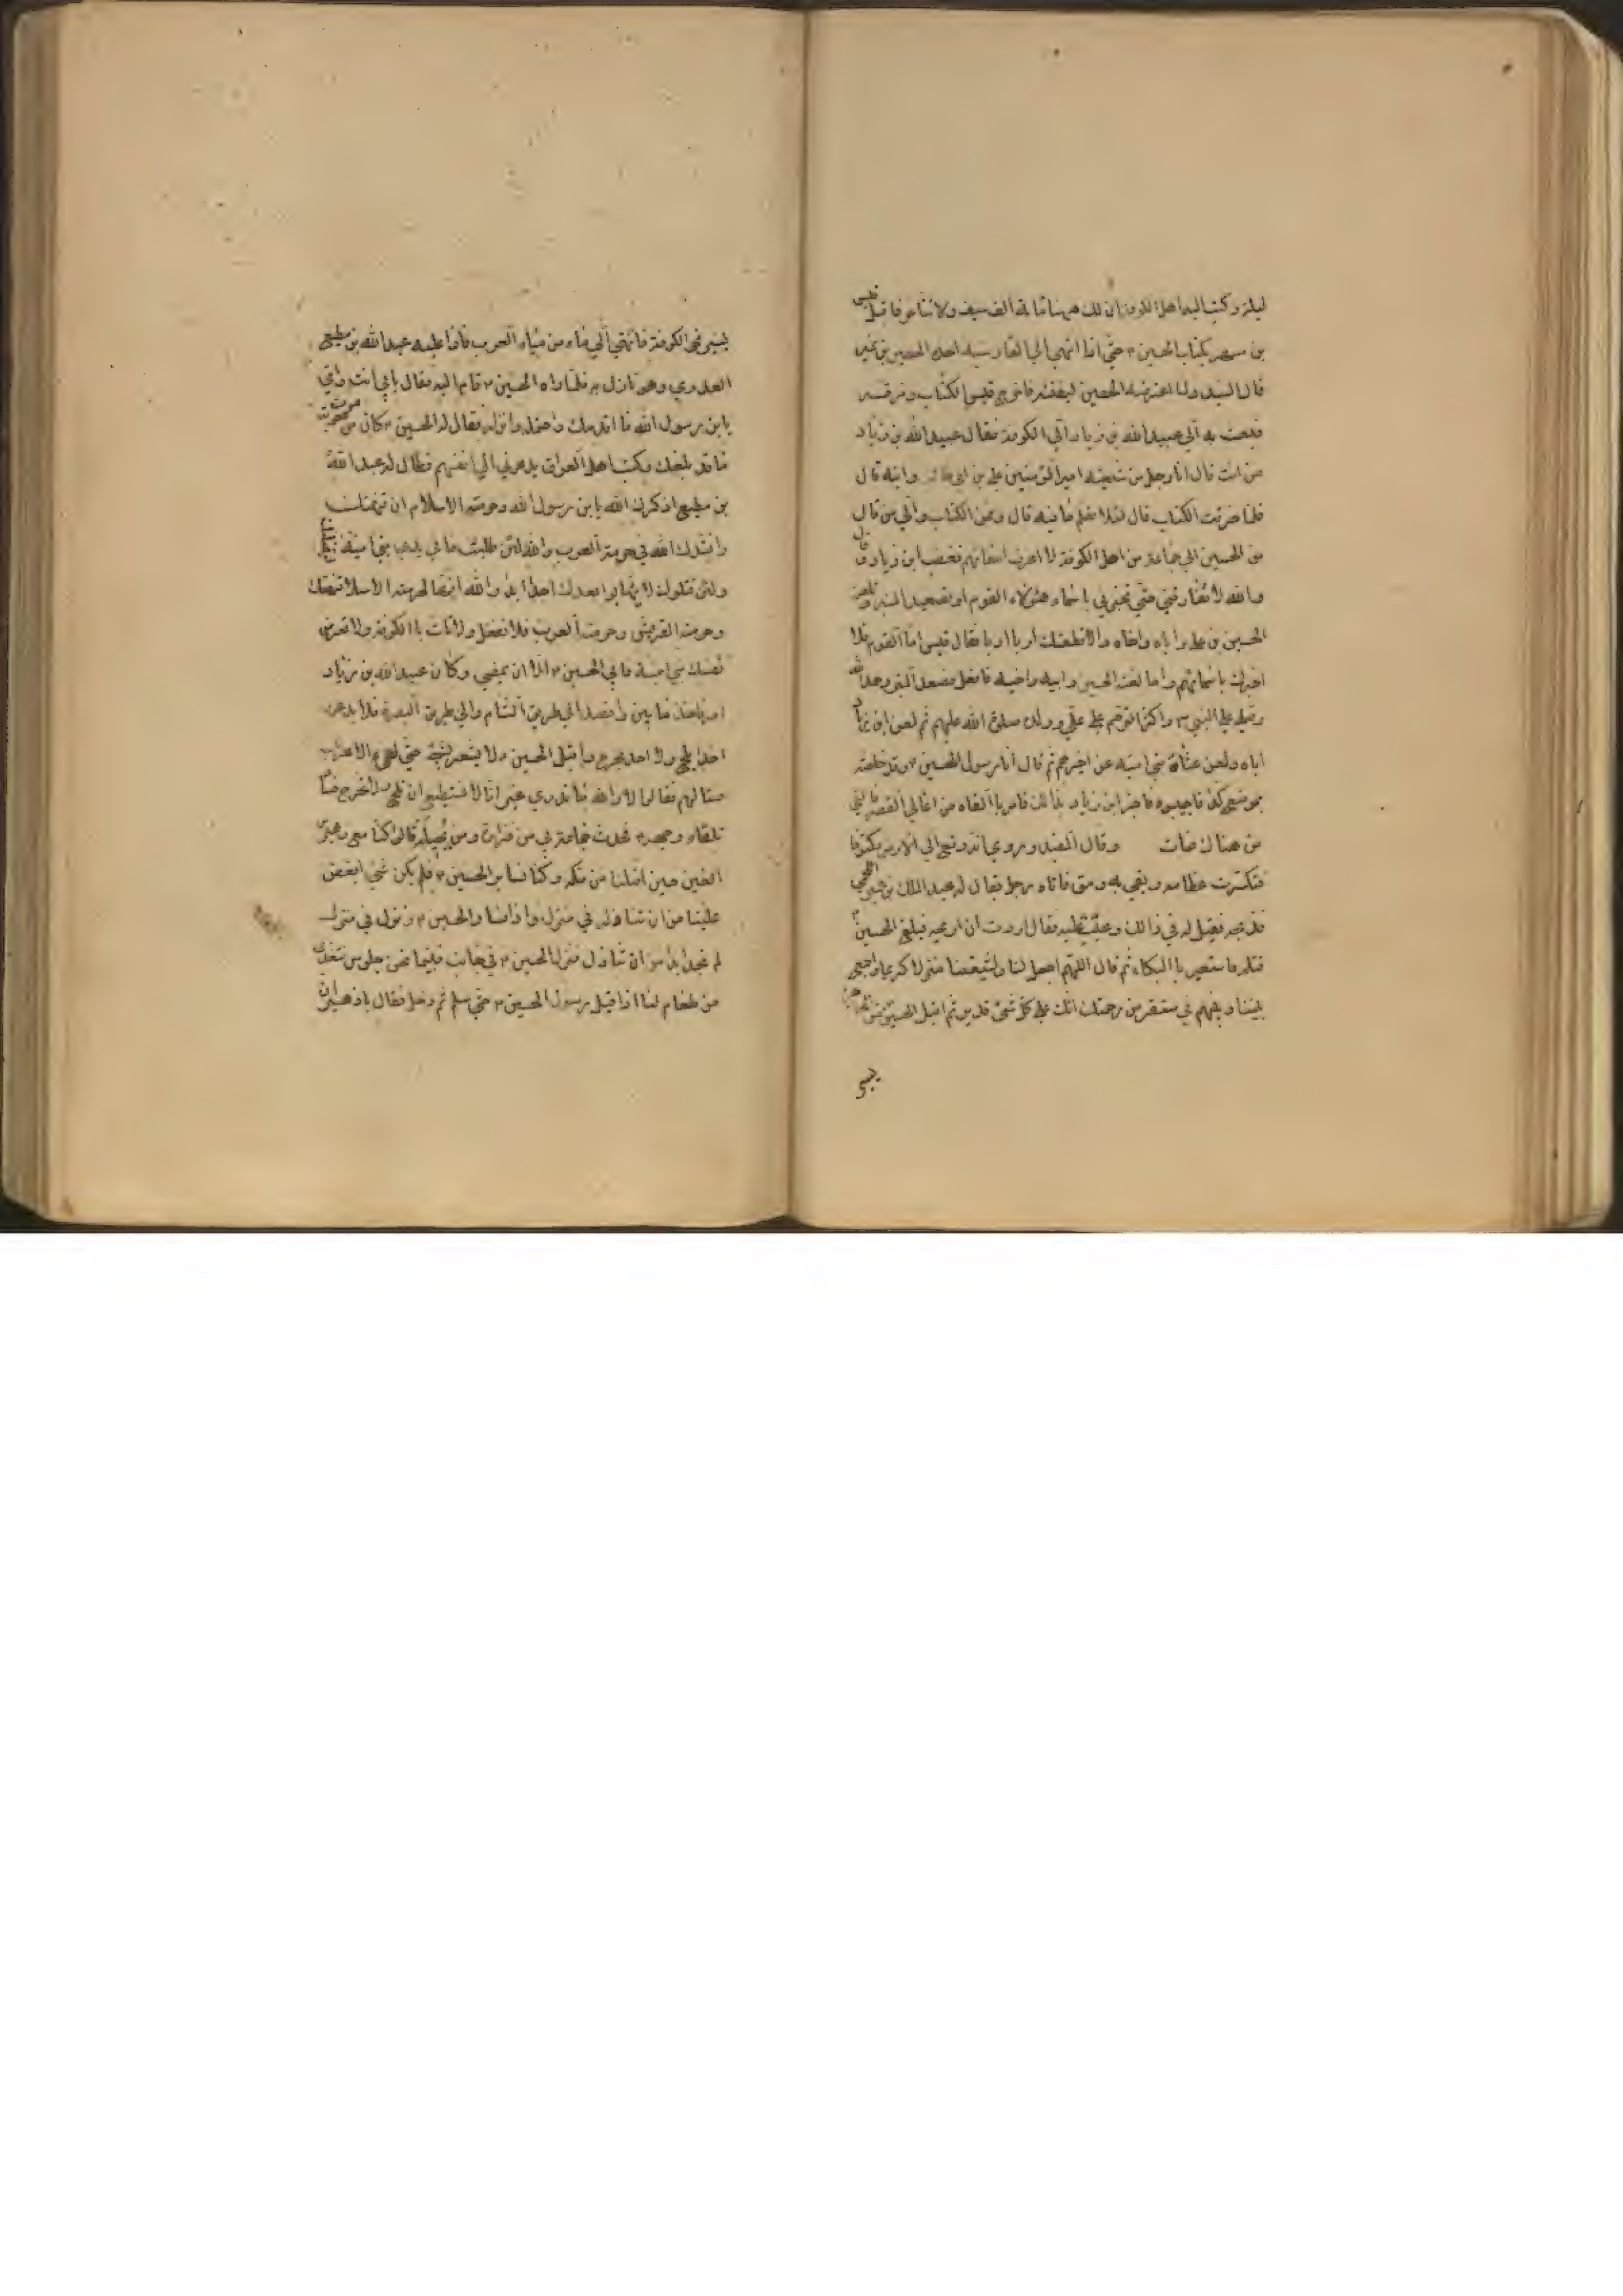 ليلة وكتب اليه اهل الكوفة ان لك ههنا مائة الف سيف ولا تتاخر فاقبل قيس
بن مسهر بكتاب الحسين ع حتى اذا انتهى الى القادسية اخذه الحصين بن نمير
قال السيد ولما اعترضه الحصين ليفتشه فاخرج قيس الكتاب ومزقه
فبعث به الى عبيد الله بن زياد الى الكوفة فقال عبيد الله بن زياد
من انت قال انا رجل من شيعة امير المؤمنين علي بن ابي طالب وابنه قال
فلما خرقت الكتاب قال لئلا تعلم ما فيه قال وممن الكتاب والى من قال
من الحسين الى جماعة من اهل الكوفة لا اعرف اسمائهم فغضب ابن زياد وقال
والله لا تفارقني حتى تخبرني باسماء هؤلاء القوم او تصعد المنبر وتلعن
الحسين بن علي واباه واخاه والا قطعتك اربا اربا فقال قيس اما القوم فلا
اخبرك باسمائهم واما لعنة الحسين وابيه واخيه فافعل فصعد المنبر وحمد الله
وصلى على النبي ص واكثر الترحم على علي وولده صلوة الله عليهم ثم لعن ابن زياد
اباه ولعن عتاة بني امية عن اخرهم ثم قال انا رسول الحسين ع وقد خلفته
بموضع كذا فاجيبوه فاخبر ابن زياد بذالك فامر باالقاه من اعالي القصر فالقي
من هناك فمات وقال المفيد وروي انه وقع الى الارض مكتوفا
فتكسرت عظامه وبقي به رمق فاتاه رجل يقال له عبد الملك بن عمير اللخمي
فذبحه فقيل له في ذالك وعيب عليه فقال اردت ان اريحه فبلغ الحسين
قتله فاستعبر باالبكاء ثم قال اللهم اجعل لنا ولشيعتنا منزلا كريما واجمع
بيننا وبينهم في مستقر من رحمتك انك على كل شئ قدير ثم اقبل الحسين من
يسير
يسير نحو الكوفة فانتهى الى ماء من مياه العرب فاذا عليه عبد الله بن مطيع
العدوي وهو نازل به فلما راه الحسين ع قام اليه فقال بابي انت وامي
يابن رسول الله ما اقدمك واحتمله وانزله فقال له الحسين ع كان من موت معوية
ما قد بلغك وكتب اهل العراق يدعوني الى انفسهم فقال له عبد الله
بن مطيع اذكرك الله يابن رسول الله وحرمة الاسلام ان تنهتك
وانشدك الله في حرمة العرب والله لئن طلبت ما في يد بني امية ليقتلنك
ولئن قتلوك لا يهابوا بعدك احدا ابدا والله انها لحرمة الاسلام تنهتك
وحرمة القريش وحرمة العرب فلا تفعل ولا تات باالكوفة ولا تعرض
نفسك بني امية فابى الحسين ع الا ان يمضي وكان عبيد الله بن زياد
امر باخذ ما بين واقصة الى طريق الشام والى طريق البصرة فلا يدعون
احدا يلج ولا احد يخرج واقبل الحسين ولا يشعر بشئ حتى لقي الاعراب
فسالهم فقالوا لا والله ما ندري غير انا لا نستطيع ان نلج ولا نخرج فسار
تلقاء وجهه ع فحدث جماعة من فزارة ومن بجيلة قالوا كنا مع زهير
القين حين اقبلنا من مكة وكنا نساير الحسين ع فلم يكن شئ ابغض
علينا من ان ننازله في منزله واذا سار الحسين ع ونزل في منزل
لم نجد بدا من ان ننازل منزل الحسين ع في جانب فبينما نحن جلوس نتغدى
من طعام لنا اذ اقبل رسول الحسين ع حتى سلم ثم دخل فقال يا زهير ان